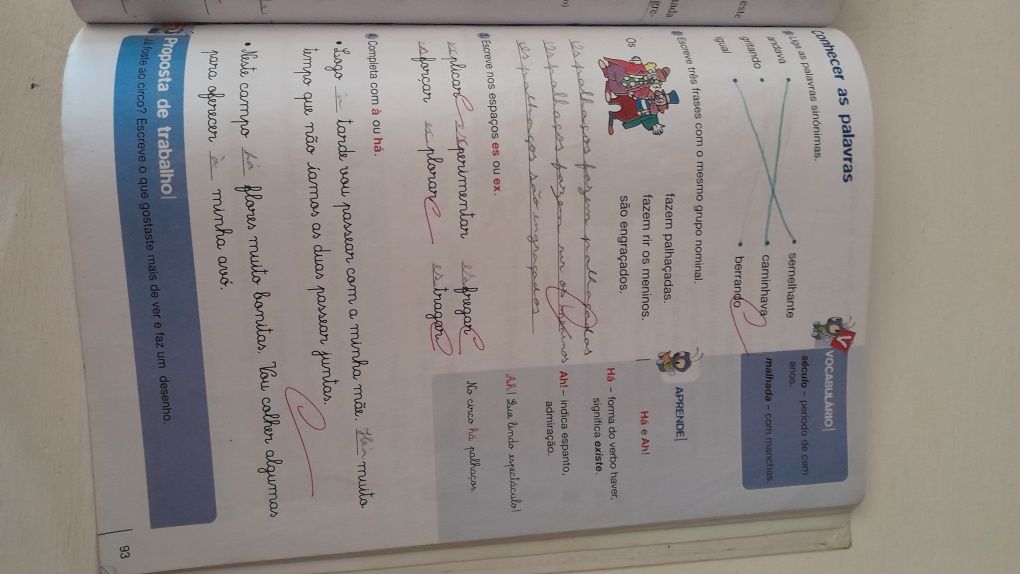 este
nada
gre.
conhecer as palavras
Liga as palavras sinónimas.
andava
gritando
igual
semelhante
caminhava
berrando
VOCABULÁRIO
século – período de cem
anos.
malhada – com manchas.
Escreve três frases com o mesmo grupo nominal.
Os
fazem palhaçadas.
fazem rir os meninos.
são engraçados.
os palhaços fazem palhaçadas
os palhaços fazem rir os meninos
os palhaços são engraçados
APRENDE
Há e Ah!
Há – forma do verbo haver,
significa existe.
Ah! – indica espanto,
admiração.
Ah! Que lindo espectáculo!
No circo há palhaços
Escreve nos espaços es ou ex.
explicar experimentar esfregar
esforçar explorar estragar
Completa com à ou há.
• Logo à tarde vou passear com a minha mãe. Há muito
tempo que não íamos as duas passear juntas.
• Neste campo há flores muito bonitas. Vou colher algumas
para oferecer à minha avó.
Proposta de trabalho
Já foste ao circo? Escreve o que gostaste mais de ver e faz um desenho.
93